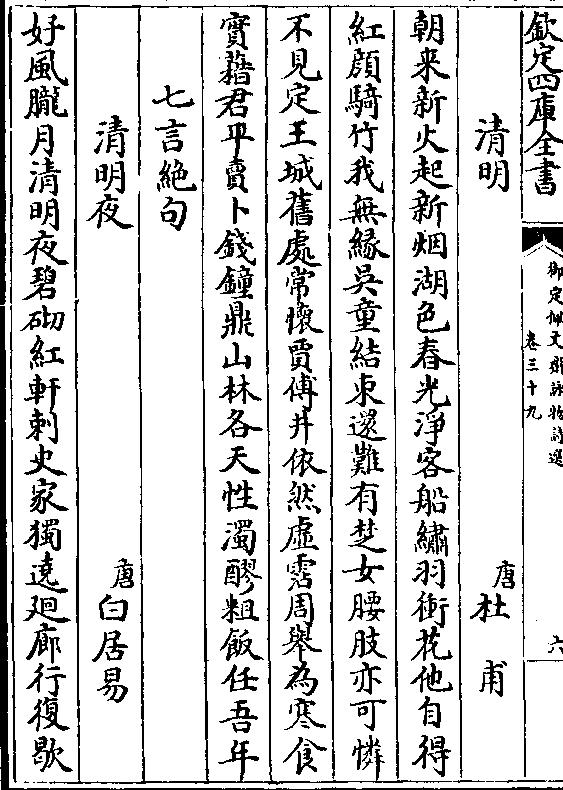 欽定四庫全書
御定佩文齋詠物詩選
卷三十九
六
清明
唐杜甫
朝来新火起新烟湖色春光淨客船繡羽銜花他自得
紅顔騎竹我無縁吳童結束還難有楚女腰肢亦可憐
不見定王城舊處常懷賈傅井依然虛霑周舉為寒食
實藉君平賣卜錢鐘鼎山林各天性濁醪粗飯任吾年
七言絶句
清明夜
唐白居易
好風朧月清明夜碧砌紅軒刺史家獨遶廻廊行復歇